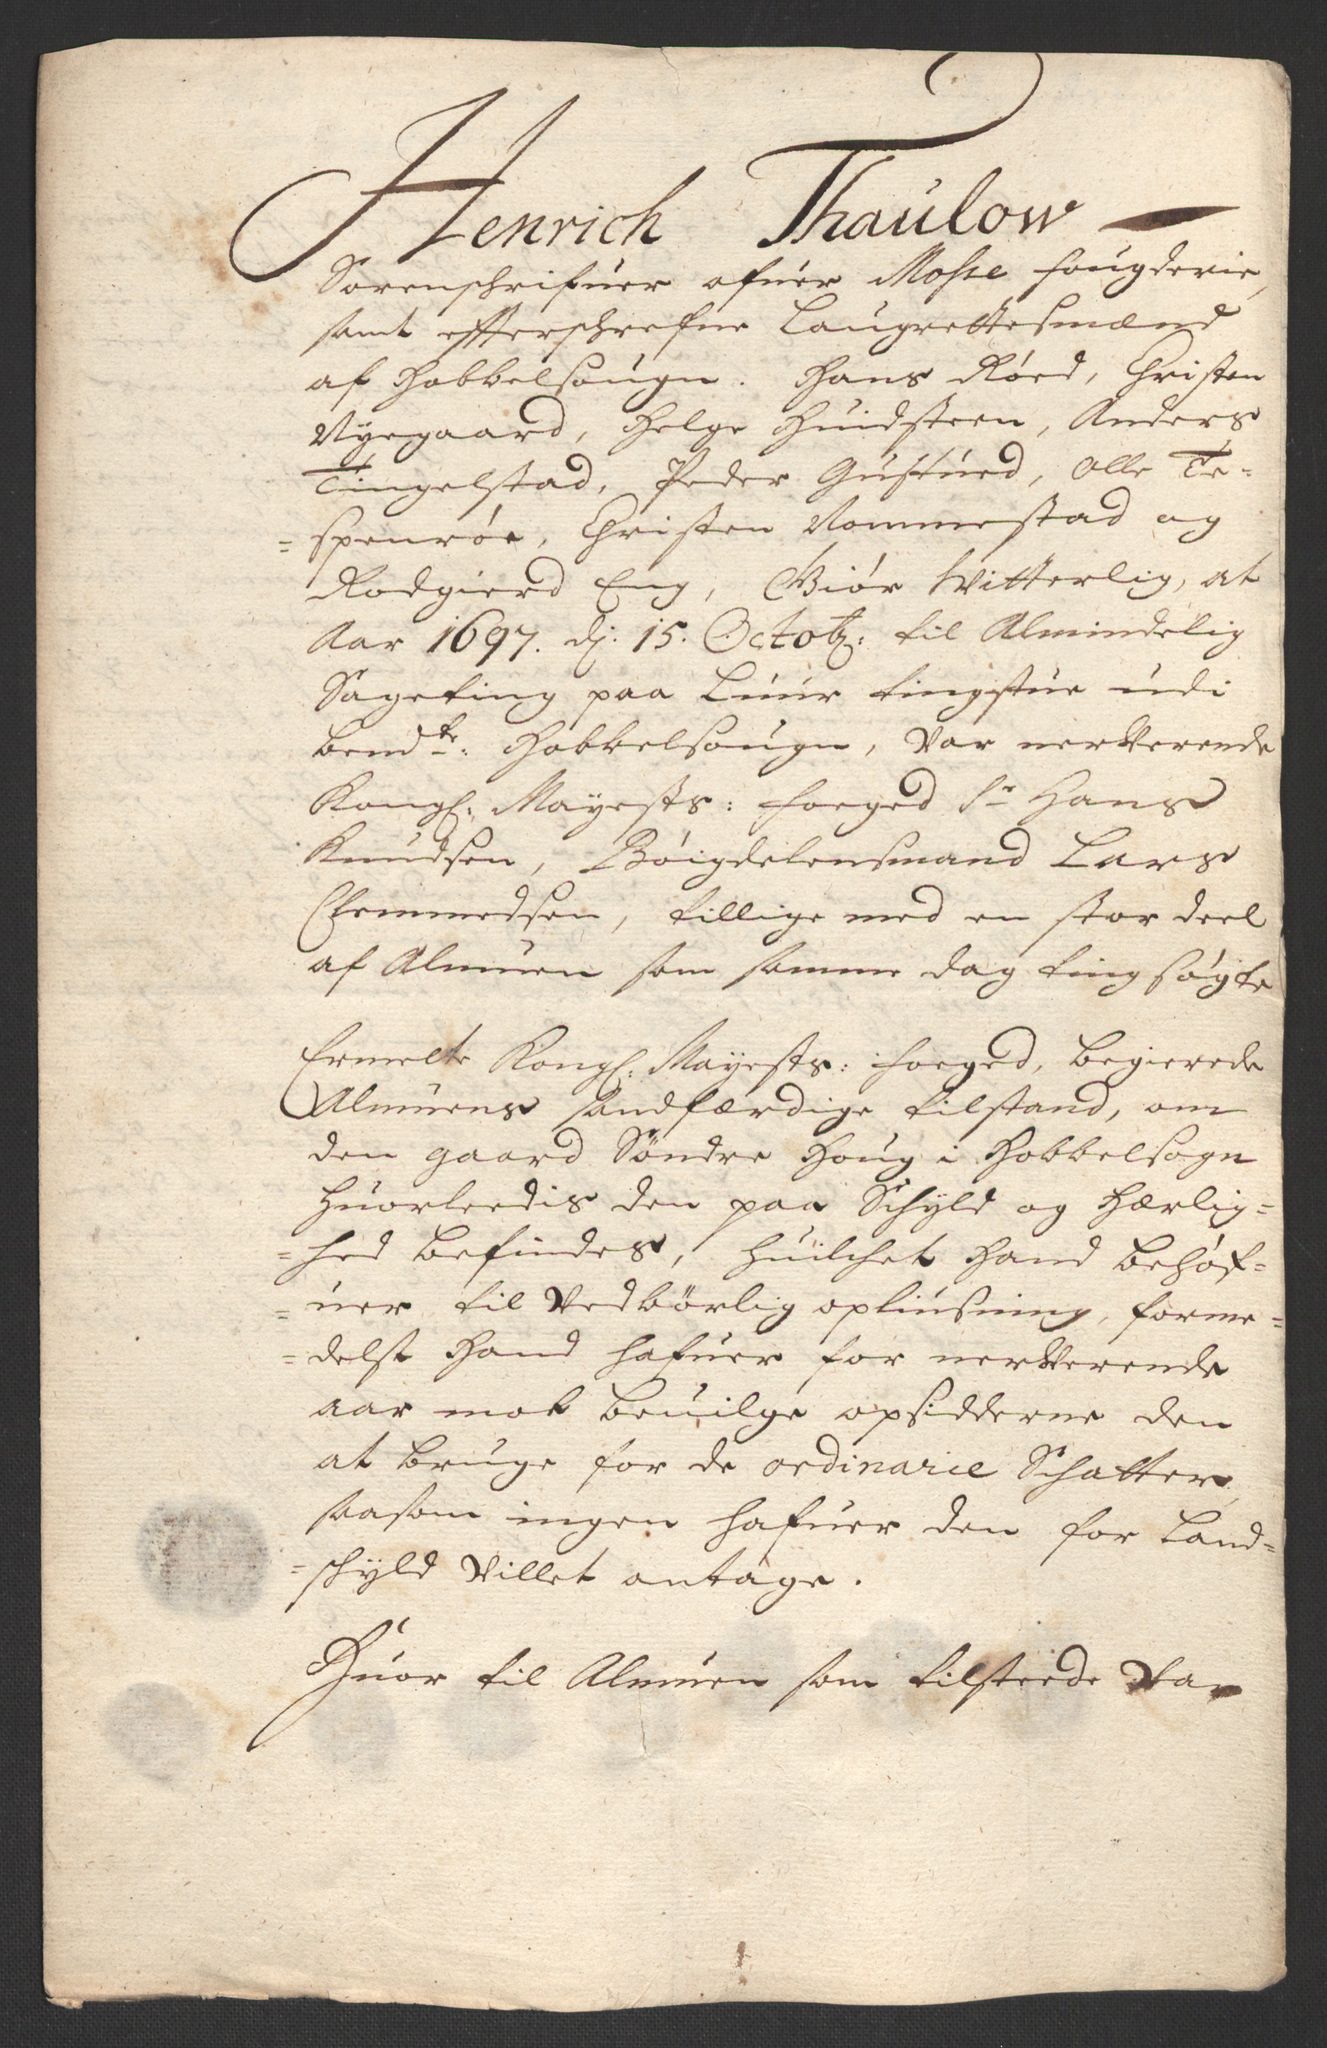 Henrich Thaulow
Sorenschrifuer ofuer Mosse fougderie,
samt effterschrefne Laugrettesmænd
af Hobbelsougn. Hans Röed, Christen
Nyegaard, Helge Huidsteen, Anders
Tingelstad, Peder Gusfued, Olle Te-
=spenröe, Christen Rommestad og
Rodgierd Eng, Giör Witterlig, at
Aar 1697. dj. 15. Octobr: til Almindelig
Sageting paa Luur tingstue udi
bemdte: Hobbelsougn, var nerverende
Kongl: Mayests: foeged Sr Hans
Knudsen, Böigdelensmand Lars
Clemmedsen, tillige med en stor deel
af Almuen som samme dag ting sögte
Ermelte Kongl: Mayests: foeged, begierede
Almuens sandfærdige tilstand, om
den gaard Söndre Houg i Hobbelsogn
huorleedis den paa Schyld og Hærlig=
=hed befindes, huilchet Hand behöf=
=uer til vedbörlig opliusning, forme=
=delst Hand hafuer for nerverende
aar mot beuilge opsidderne den
at bruge for de ordinarie Schatter,
saasom ingen hafuer den for Land=
=schyld villet antage.
Huor til Almuen som tilsteede var